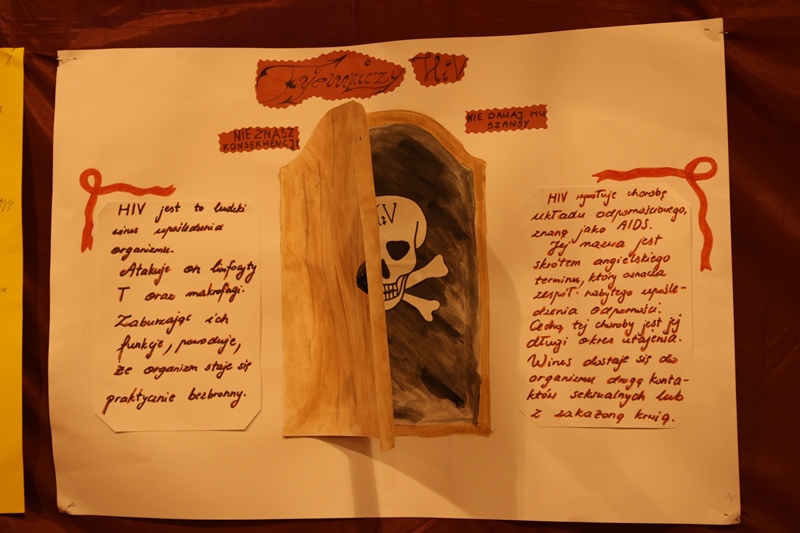 Tajemniczy HiV
NIE ZNASZ
KONSEKWENCJI
NIE DAWAJ MU
SZANSY
HiV
HIV jest to ludzki
wirus upośledzenia
organizmu.
Atakuje on limfocyty
T oraz makrofagi.
Zaburzając ich
funkcje, powoduje,
że organizm staje się
praktycznie bezbronny.
HIV wywołuje chorobę
układu odpornościowego,
znaną jako AIDS.
Jej nazwa jest
skrótem angielskiego
terminu, który oznacza
zespół nabytego upośle-
dzenia odporności.
Cechą tej choroby jest jej
długi okres utajenia.
Wirus dostaje się do
organizmu drogą konta-
któw seksualnych lub
z zakażoną krwią.